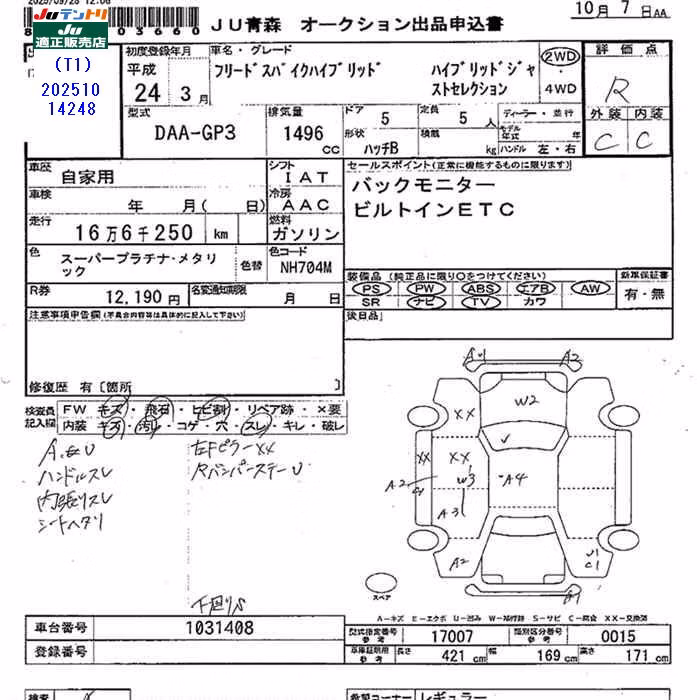 2025/09/28 12:06
Juテントリ
Ju適正販売店
(T1)
202510
14248
03660
JU青森 オークション出品申込書
10月 7日AA
初度登録年月
平成
24年3月
車名・グレード
フリードスパイクハイブリッド ハイブリッドジャストセレクション
2WD・4WD
評価点
R
外装 内装
C C
型式
DAA-GP3
排気量
1496 cc
ドア 5
定員 5人
形状 ハッチB
積載 kg
ディーラー・並行
モデル年式 年
ハンドル 左・右
車歴
自家用
シフト
IAT
車検
年 月( 日)
冷房
AAC
走行
16万6千250 km
燃料
ガソリン
色
スーパープラチナ・メタリック
色替
色コード
NH704M
セールスポイント(正常に機能するものに限ります)
バックモニター
ビルトインETC
装備品(純正品に限り○をつけてください)
PS PW ABS エアB AW
SR ナビ TV カワ
新車保証書
有・無
後日品
R券
12,190円
名変通知期限
月 日
注意事項申告欄(不具合内容等は具体的に記入して下さい)
修復歴 有〔箇所 〕
検査員記入欄
FW キズ・飛石・ヒビ割・リペア跡・×要
内装 キズ・汚レ・コゲ・穴・スレ・キレ・破レ
A.E.U
ハンドルスレ
内張りスレ
シートヘタリ
左Fピラー××
Rバンパーステー U
下回りS
A1 A2
W2
XX
XX XX
W3
A2
A4
A3
A2
U1
C1
スペア
A-キズ E-エクボ U-凹み W-補修跡 S-サビ C-腐食 XX-交換済
車台番号
1031408
登録番号
型式指定番号 参考
17007
類別区分番号 参考
0015
車庫証明用 参考
長さ 421cm 幅 169cm 高さ 171cm
検査
希望コーナー
レギュラー